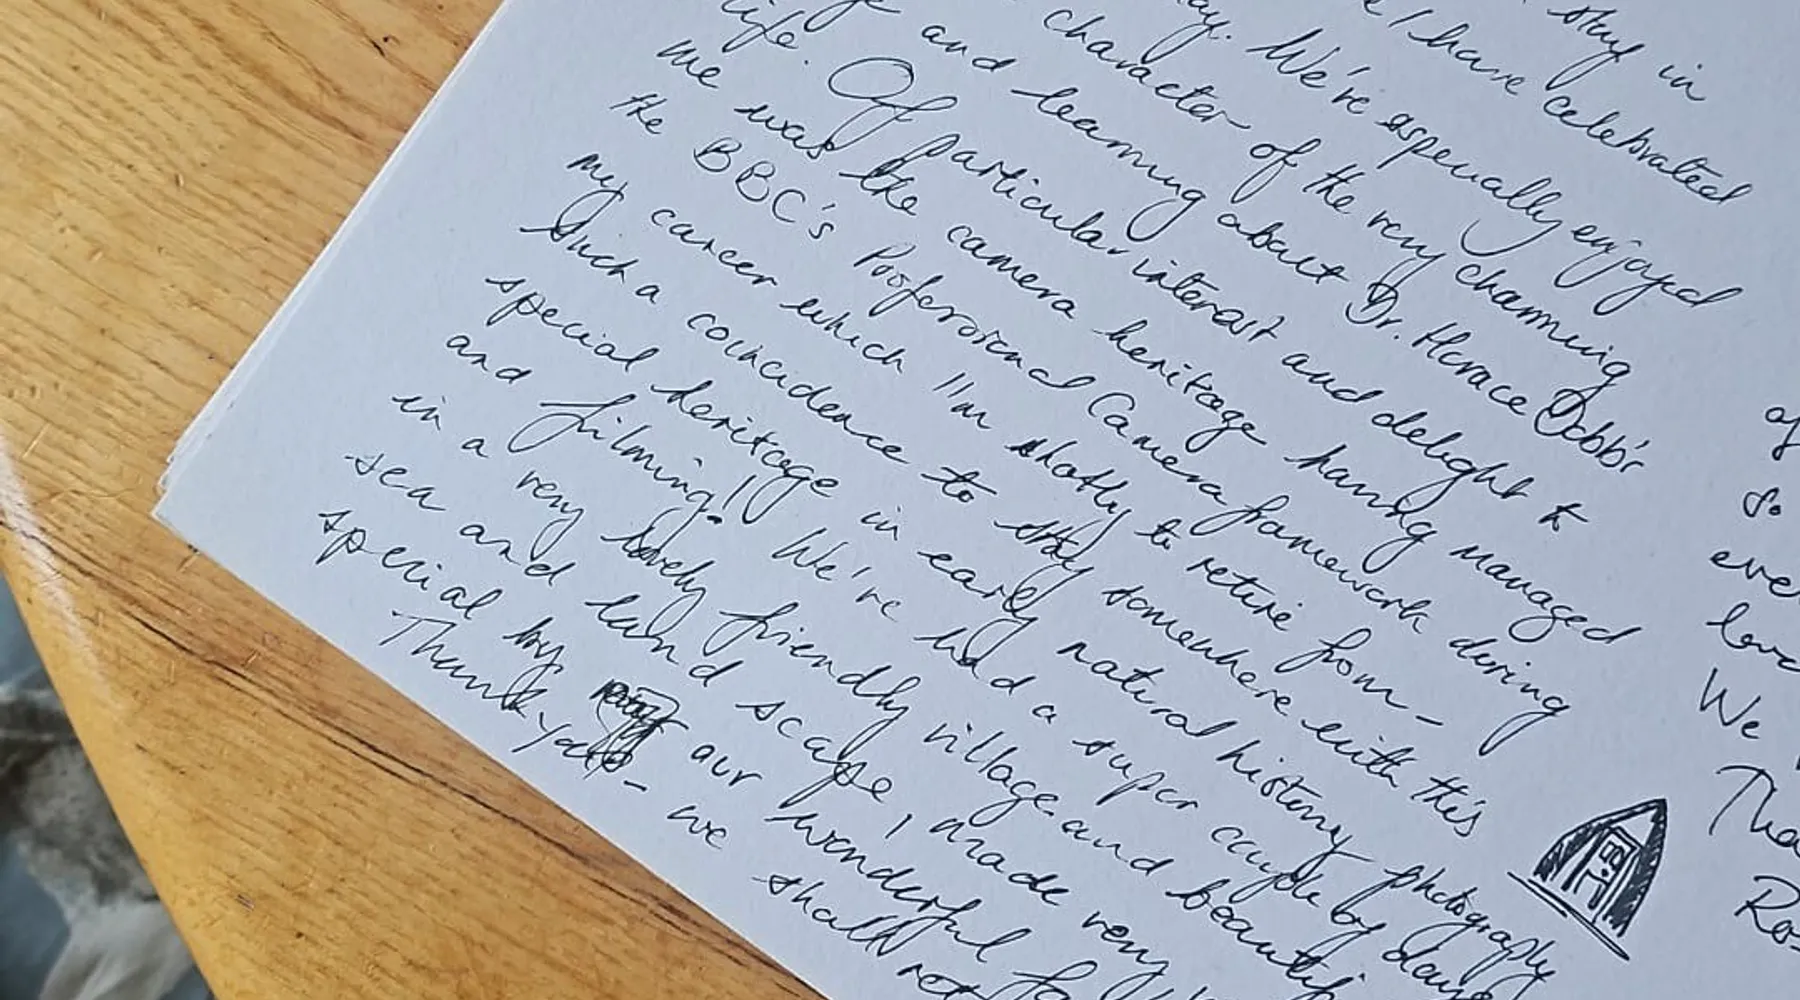 stay in
I have celebrated
We're especially enjoyed
character of the very charming
and learning about Dr. Horace Dobb's
life. Of particular interest and delight to
me was the camera heritage having managed
the BBC's Professional Camera framework during
my career which I'm shotly to retire from -
Such a coincidence to stay somewhere with this
special heritage in early natural history photography
and filming! We've had a super couple of days
in a very lovely friendly village and
sea and land scape, made very
special by our wonderful
Thank you - we shall
of
so
We